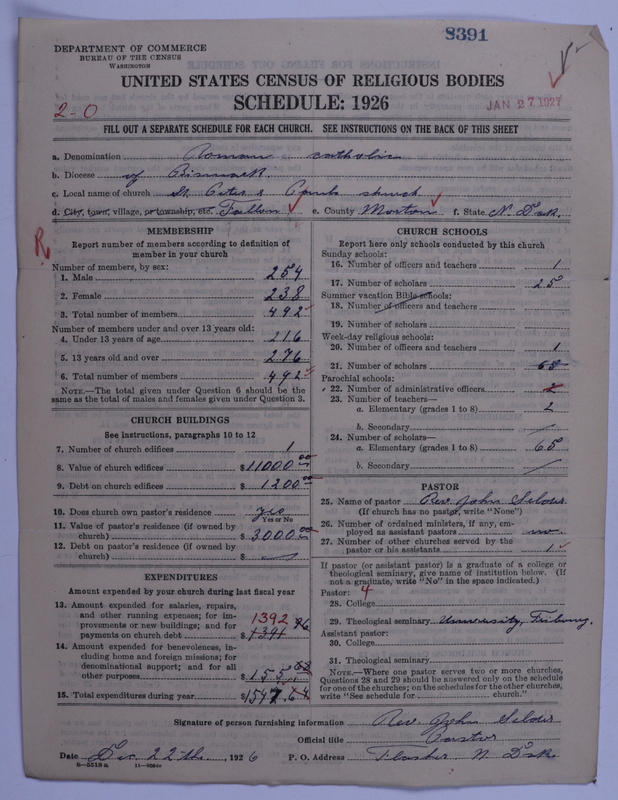 8391
DEPARTMENT OF COMMERCE
BUREAU OF THE CENSUS
WASHINGTON
UNITED STATES CENSUS OF RELIGIOUS BODIES
SCHEDULE: 1926
2-0
JAN 27 1927
FILL OUT A SEPARATE SCHEDULE FOR EACH CHURCH. SEE INSTRUCTIONS ON THE BACK OF THIS SHEET
a. Denomination Roman catholic
b. Diocese of Bismarck
c. Local name of church St. Peter & Pauls church
d. City, town, village, or township, etc. Fallon e. County Morton f. State N. Dak.
R
MEMBERSHIP
Report number of members according to definition of
member in your church
Number of members, by sex:
1. Male 254
2. Female 238
3. Total number of members 492
Number of members under and over 13 years old:
4. Under 13 years of age 216
5. 13 years old and over 276
6. Total number of members 492
NOTE.—The total given under Question 6 should be
same as the total of males and females given under Question 3.
CHURCH BUILDINGS
See instructions, paragraphs 10 to 12
7. Number of church edifices 1
8. Value of church edifices $11000.00
9. Debt on church edifices $1200.00
10. Does church own pastor's residence yes
Yes or No
11. Value of pastor's residence (if owned by
church) $3000.00
12. Debt on pastor's residence (if owned by
church) $
EXPENDITURES
Amount expended by your church during last fiscal year
13. Amount expended for salaries, repairs,
and other running expenses; for im-
provements or new buildings; and for
payments on church debt $1391
1392
14. Amount expended for benevolences, in-
cluding home and foreign missions; for
denominational support; and for all
other purposes $155
15. Total expenditures during year $1547.64
CHURCH SCHOOLS
Report here only schools conducted by this church
Sunday schools:
16. Number of officers and teachers 1
17. Number of scholars 25
Summer vacation Bible schools:
18. Number of officers and teachers
19. Number of scholars
Week-day religious schools:
20. Number of officers and teachers 1
21. Number of scholars 68
Parochial schools:
22. Number of administrative officers 2
23. Number of teachers—
a. Elementary (grades 1 to 8) 2
b. Secondary
24. Number of scholars—
a. Elementary (grades 1 to 8) 65
b. Secondary
PASTOR
25. Name of pastor Rev. John
(If church has no pastor, write "None")
26. Number of ordained ministers, if any, em-
ployed as assistant pastors no
27. Number of other churches served by the
pastor or his assistants 1
If pastor (or assistant pastor) is a graduate of a college or
theological seminary, give name of institution below. (If
not a graduate, write "No" in the space indicated.)
Pastor: 4
28. College
29. Theological seminary University,
Assistant pastor:
30. College
31. Theological seminary
NOTE.—Where one pastor serves two or more churches,
Questions 28 and 29 should be answered only on the schedule
for one of the churches; on the schedules for the other churches,
write "See schedule for church."
Signature of person furnishing information Rev. John
Official title Pastor
Date Dec. 22th, 1926 P. O. Address Flasher N. Dak.
8-5518a 11-9604